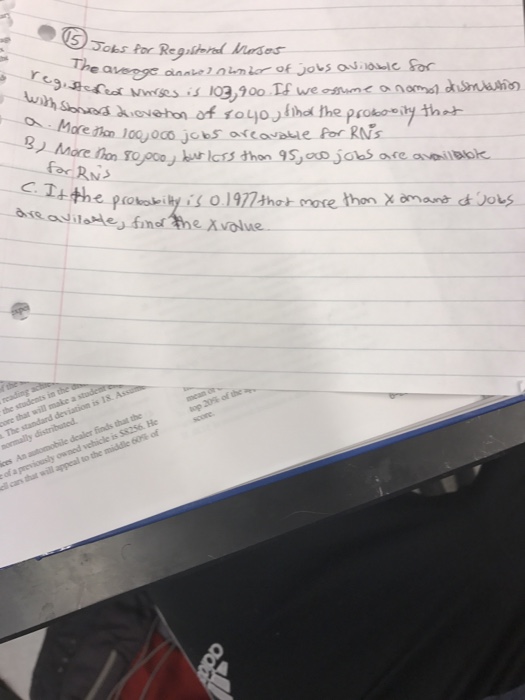 15 Jobs for Registered Nurses
The average annual number of jobs available for
registered nurses is 103,900. If we assume a normal distribution
with standard diviation of 8040, find the probability that
a. More than 100,000 jobs are avable for RN's
B) More than 80,000, but less than 95,000 jobs are available
for RN's
C. If the probability is 0.1977 that more than X amant of jobs
are avilable, find the X value.
reading
the students in the
ore that will make a student
The standard deviation is 18. Assu
normally distributed.
lers An automobile dealer finds that the
of a previously owned vehicle is $8256. He
ell cars that will appeal to the middle 60% of
mean of
top 20% of the
score.